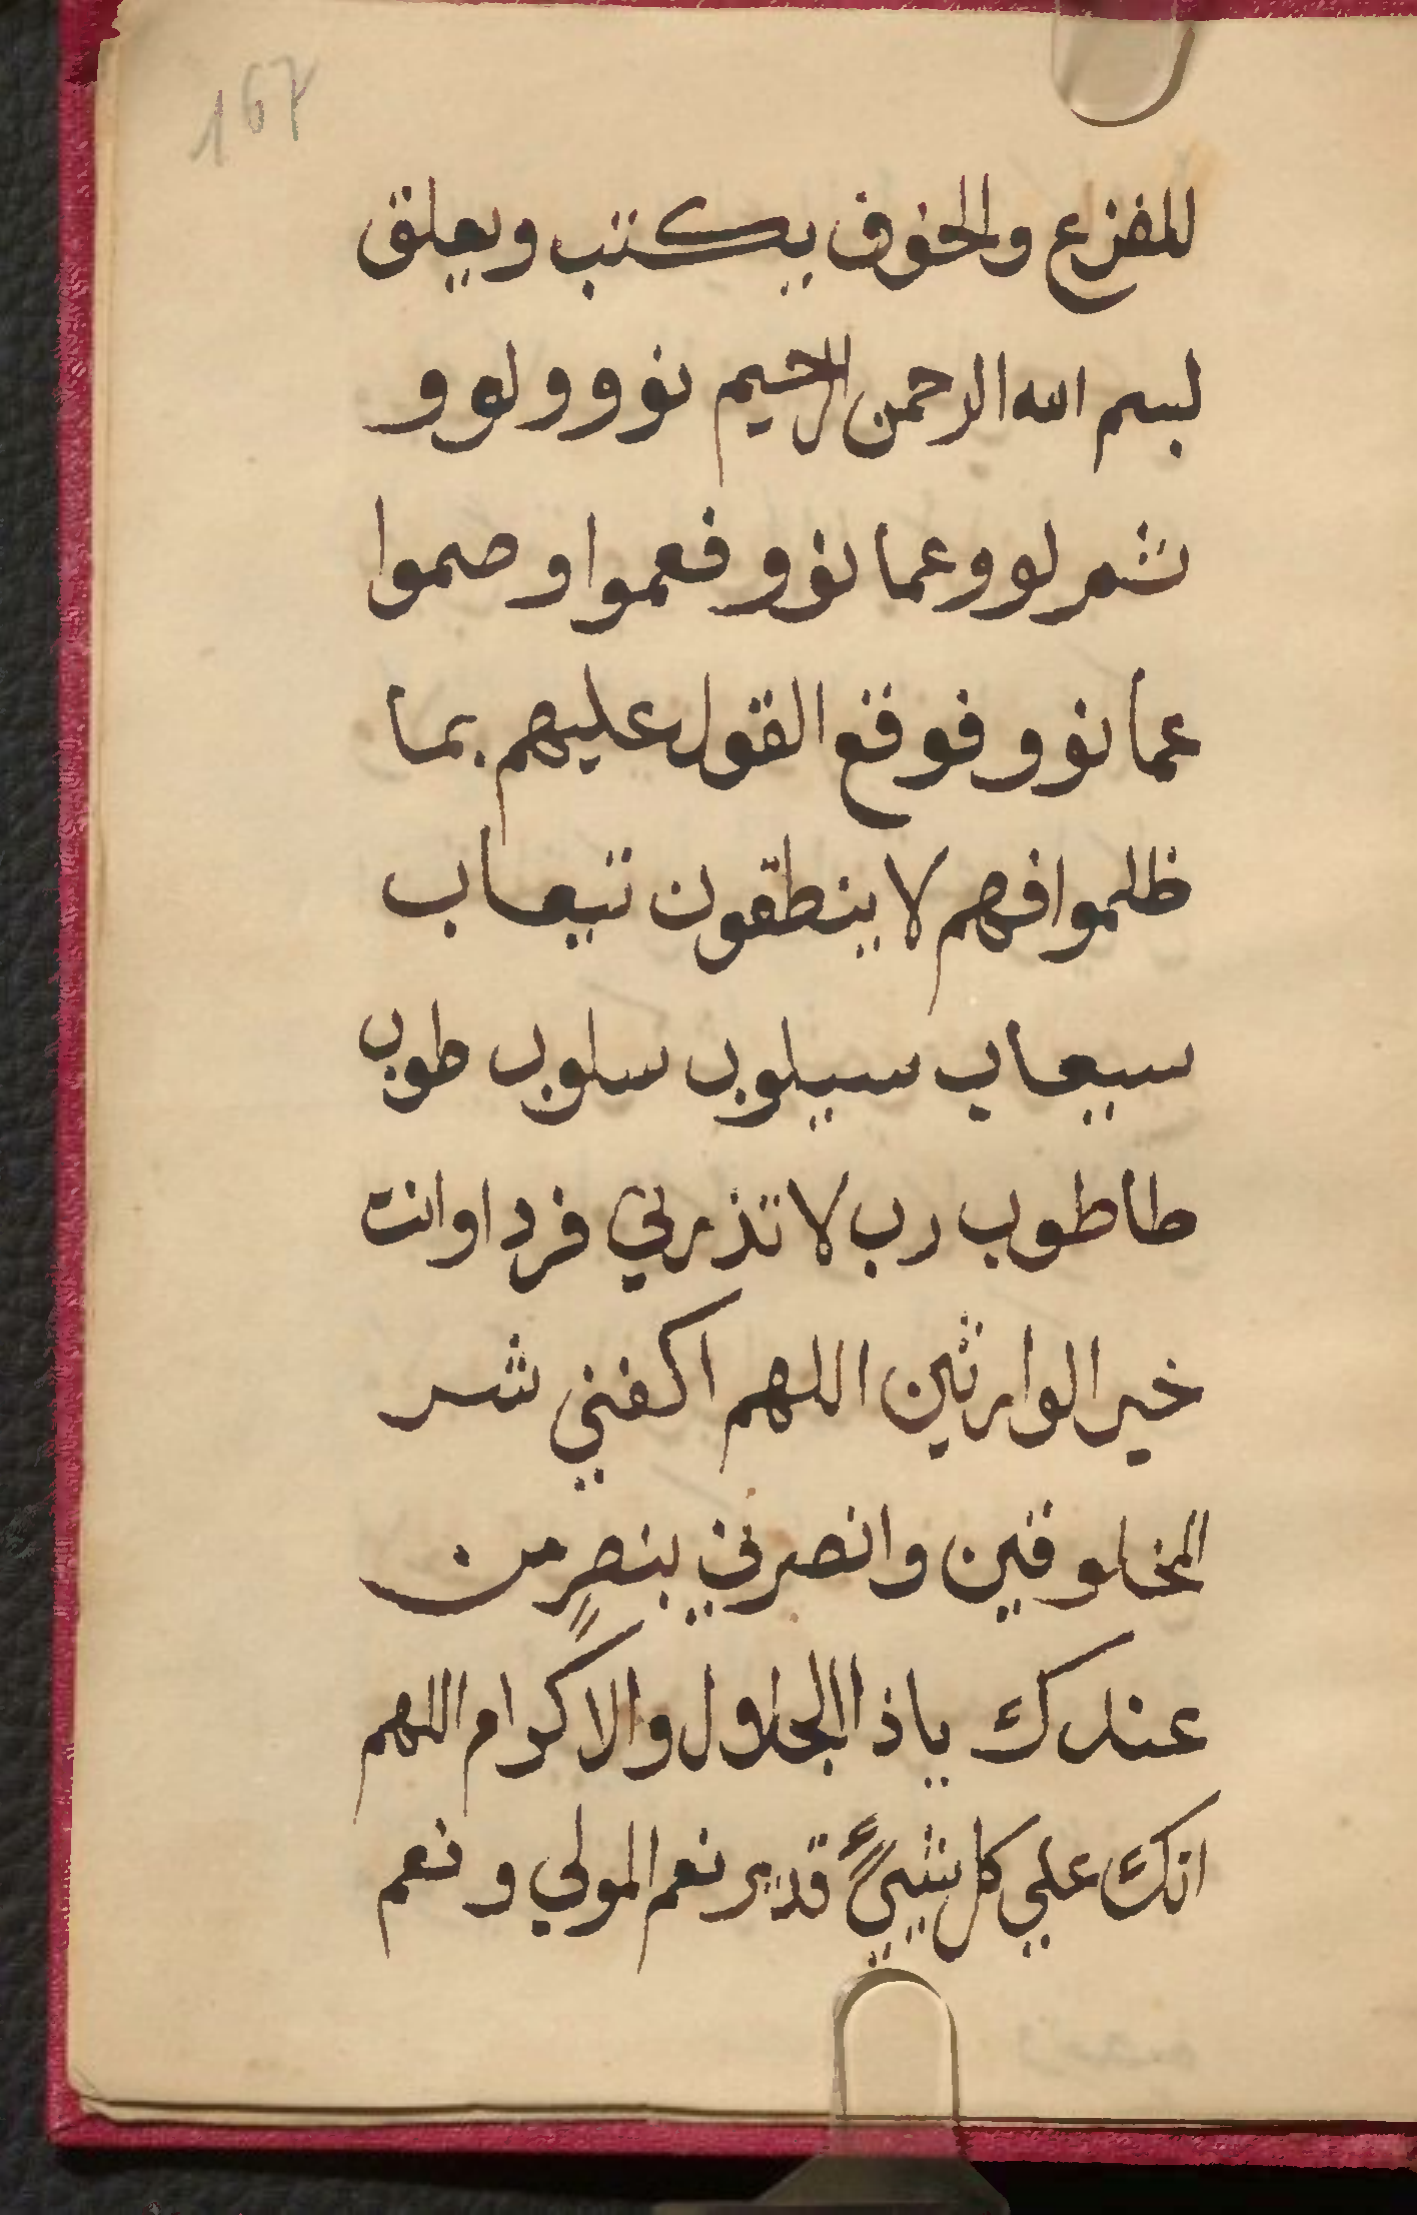 167
للفزع والخوف يكتب ويعلق
لبسم الله الرحمن الرحيم نووولوو
ثم لووعما نوو فعموا وصموا
عما نوو فوقع القول عليهم بما
ظلموا فهم لا ينطقون تبعاب
سيعاب سيلوب سلوب طوب
طاطوب رب لا تذرني فردا وانت
خير الوارثين اللهم اكفني شر
المخلوقين وانصرني بنصرٍ من
عندك ياذا الجلال والاكرام اللهم
انك علي كل شييءٍ قدير نعم المولي ونعم